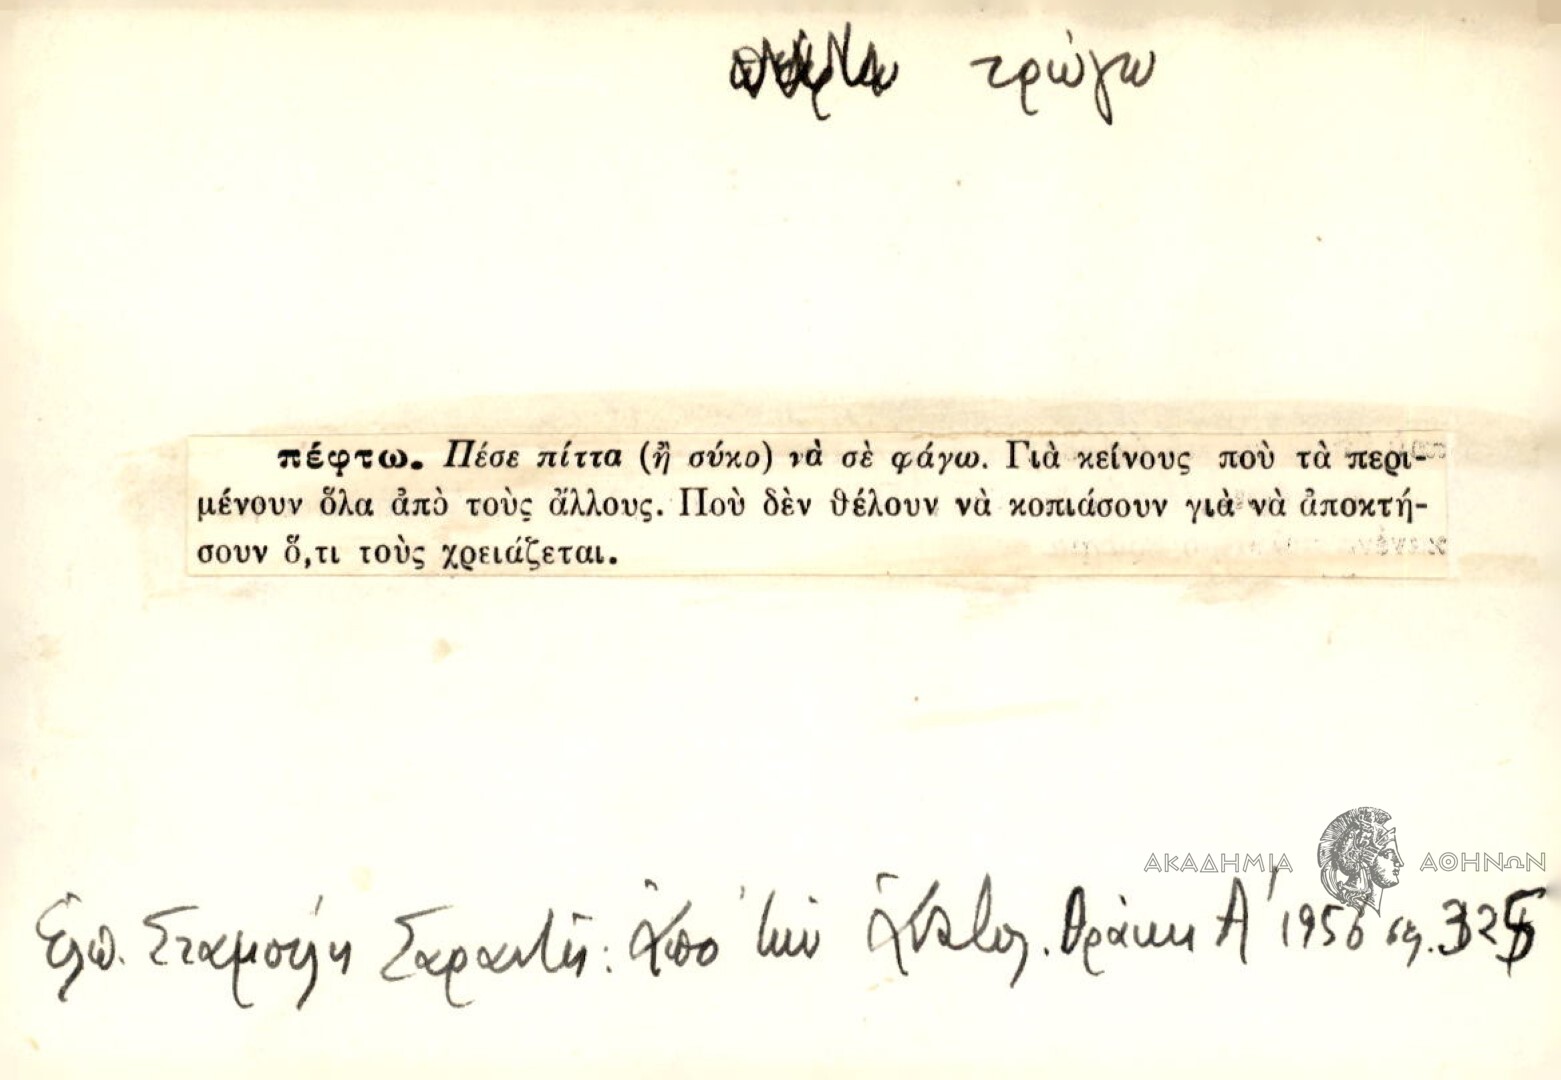 τρώγω
πέφτω. Πέσε πίττα (ἢ σύκο) νὰ σὲ φάγω. Γιὰ κείνους ποὺ τὰ περι-
μένουν ὅλα ἀπὸ τοὺς ἄλλους. Ποὺ δὲν θέλουν νὰ κοπιάσουν γιὰ νὰ ἀποκτή-
σουν ὅ,τι τοὺς χρειάζεται.
ΑΚΑΔΗΜΙΑ ΑΘΗΝΩΝ
Ἐλπ. Σταμούλη Σαραντῆ: Ἀπὸ τὴν Ἀνατολ. Θράκη Α' 1956 σελ.